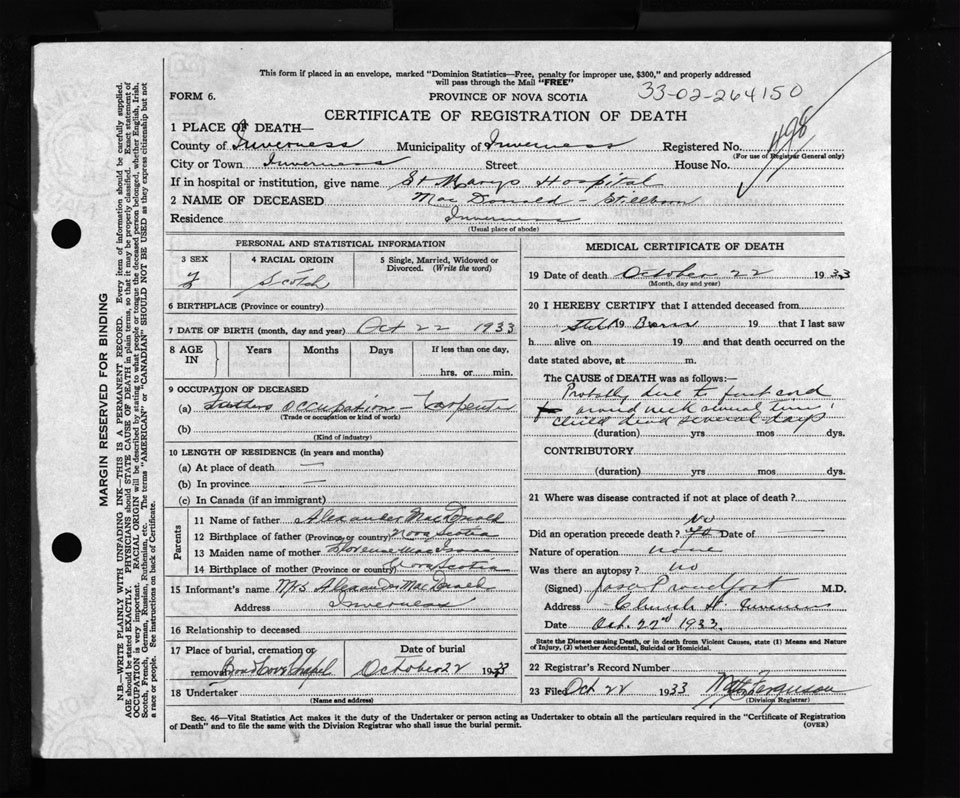 This form if placed in an envelope, marked "Dominion Statistics—Free, penalty for improper use, $300," and properly addressed
will pass through the Mail "FREE"
FORM 6.
PROVINCE OF NOVA SCOTIA
33-02-264150
CERTIFICATE OF REGISTRATION OF DEATH
1 PLACE OF DEATH—
County of Inverness Municipality of Inverness Registered No. 498
(For use of Registrar General only)
City or Town Inverness Street House No.
If in hospital or institution, give name St Marys Hospital
2 NAME OF DECEASED MacDonald - Stillborn
Residence Inverness
(Usual place of abode)
PERSONAL AND STATISTICAL INFORMATION
3 SEX 4 RACIAL ORIGIN 5 Single, Married, Widowed or Divorced. (Write the word)
F Scotch
6 BIRTHPLACE (Province or country)
7 DATE OF BIRTH (month, day and year) Oct 22 1933
8 AGE IN Years Months Days If less than one day,
hrs. or min.
9 OCCUPATION OF DECEASED
(a) Fathers Occupation - Carpenter
(Trade or occupation or kind of work)
(b)
(Kind of industry)
10 LENGTH OF RESIDENCE (in years and months)
(a) At place of death —
(b) In province —
(c) In Canada (if an immigrant)
Parents
11 Name of father Alexander MacDonald
12 Birthplace of father (Province or country) Nova Scotia
13 Maiden name of mother Florence MacIsaac
14 Birthplace of mother (Province or country) Nova Scotia
15 Informant's name Mrs Alexander MacDonald
Address Inverness
16 Relationship to deceased
17 Place of burial, cremation or removal Broad Cove Chapel
Date of burial
October 22 1933
18 Undertaker
(Name and address)
MEDICAL CERTIFICATE OF DEATH
19 Date of death October 22 1933
(Month, day and year)
20 I HEREBY CERTIFY that I attended deceased from
Still 19 Born 19 that I last saw
h alive on 19 and that death occurred on the
date stated above, at m.
The CAUSE of DEATH was as follows:—
Probably due to cord
around neck several times
child dead several days
(duration) yrs mos dys.
CONTRIBUTORY
(duration) yrs mos dys.
21 Where was disease contracted if not at place of death?
Did an operation precede death? No Date of —
Nature of operation none
Was there an autopsy? no
(Signed) Proudfoot M.D.
Address Inverness
Date Oct. 22nd 1933
State the Disease causing Death, or in death from Violent Causes, state (1) Means and Nature
of Injury, (2) whether Accidental, Suicidal or Homicidal.
22 Registrar's Record Number
23 Filed Oct 22 1933 Ferguson
(Division Registrar)
Sec. 46—Vital Statistics Act makes it the duty of the Undertaker or person acting as Undertaker to obtain all the particulars required in the "Certificate of Registration
of Death" and to file the same with the Division Registrar who shall issue the burial permit.
(OVER)
MARGIN RESERVED FOR BINDING
N.B.—WRITE PLAINLY WITH UNFADING INK—THIS IS A PERMANENT RECORD. Every item of information should be carefully supplied.
AGE should be stated EXACTLY. PHYSICIANS should STATE CAUSE OF DEATH in plain terms, so that it may be properly classified. Exact statement of
OCCUPATION is very important. RACIAL ORIGIN will be described by stating to what people or tongue the deceased person belonged, whether English, Irish,
Scotch, French, German, Russian, Ruthenian, etc. The terms "AMERICAN" or "CANADIAN" SHOULD NOT BE USED as they express citizenship but not
a race or people. See instructions on back of Certificate.